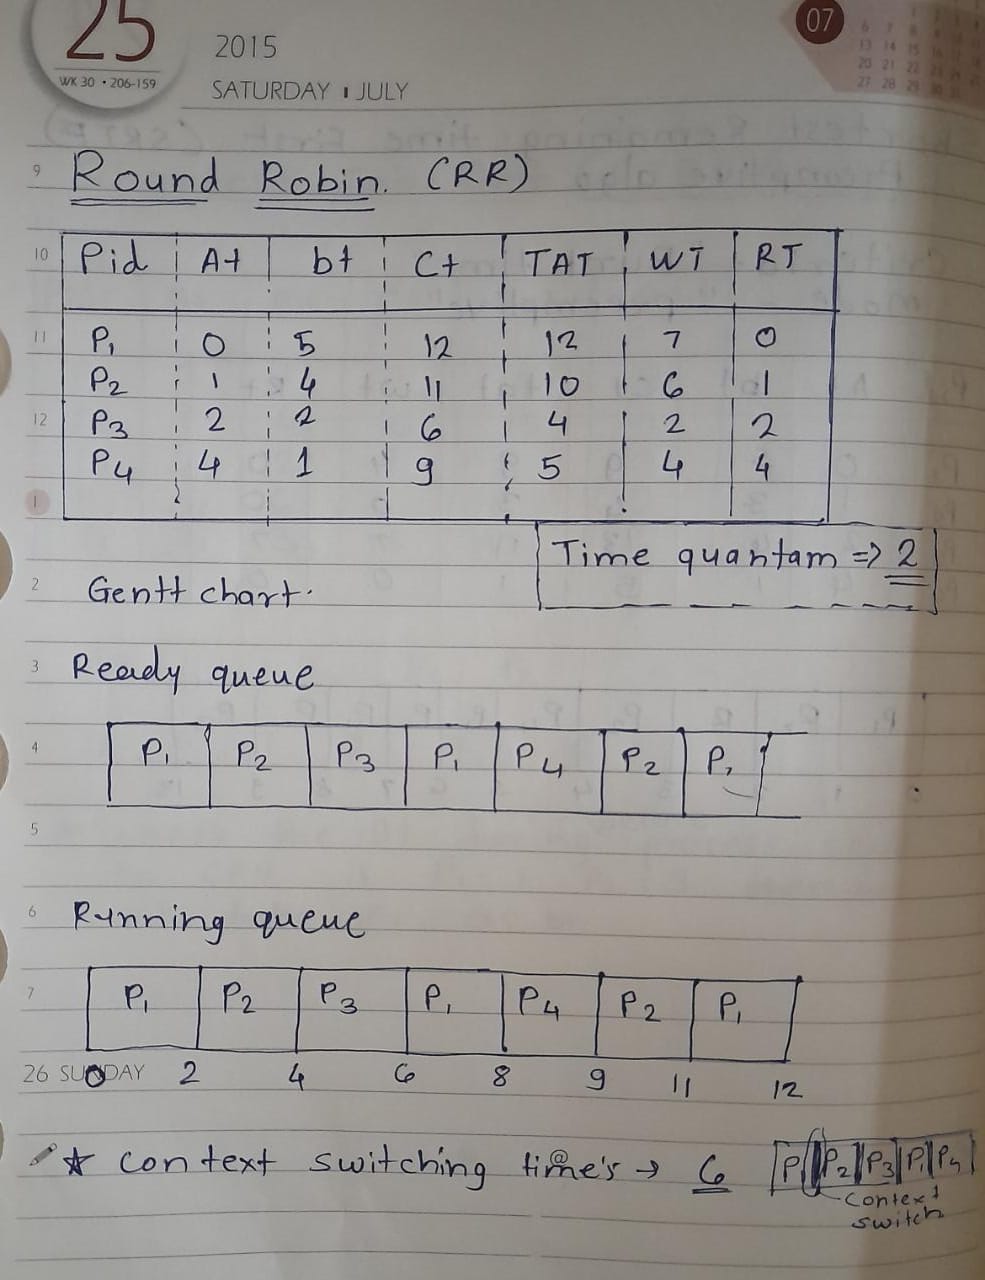 25
WK 30 • 206-159
2015
SATURDAY JULY
07
9 Round Robin. (RR)
10 Pid At bt Ct TAT WT RT
11 P1 0 5 12 12 7 0
P2 1 4 11 10 6 1
12 P3 2 2 6 4 2 2
P4 4 1 9 5 4 4
1
Time quantam => 2
2 Gentt chart.
3 Ready queue
4 P1 P2 P3 P1 P4 P2 P1
5
6 Running queue
7 P1 P2 P3 P1 P4 P2 P1
26 SUNDAY 0 2 4 6 8 9 11 12
★ context switching time's → 6 P1 P2 P3 P1 P4
context
switch